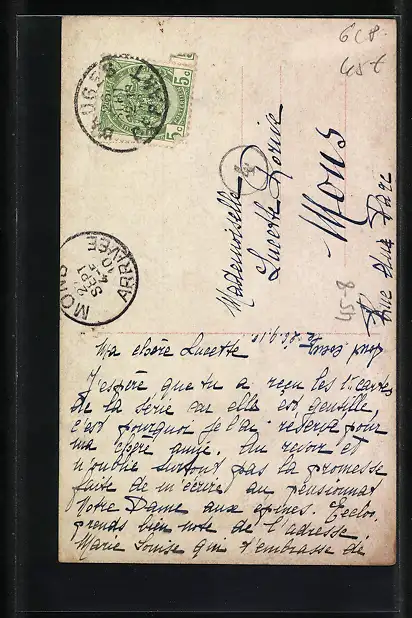 608
45 €
5 c 5 c
BRUGES
MONS
2
SEPT
10
ARRIVÉE
Mademoiselle
Lucette
Mons
Rue du Parc
Ma chère Lucette
J'espère que tu a reçu les 1 cartes
de la série car elle est gentille,
c'est pourquoi je l'ai réservé pour
ma chère amie. Au revoir et
n'oublie surtout pas la promesse
faite de m'écrire au pensionnat
Notre Dame aux épines. Eecloo.
prends bien note de l'adresse.
Marie Louise qui t'embrasse de
tout cœur